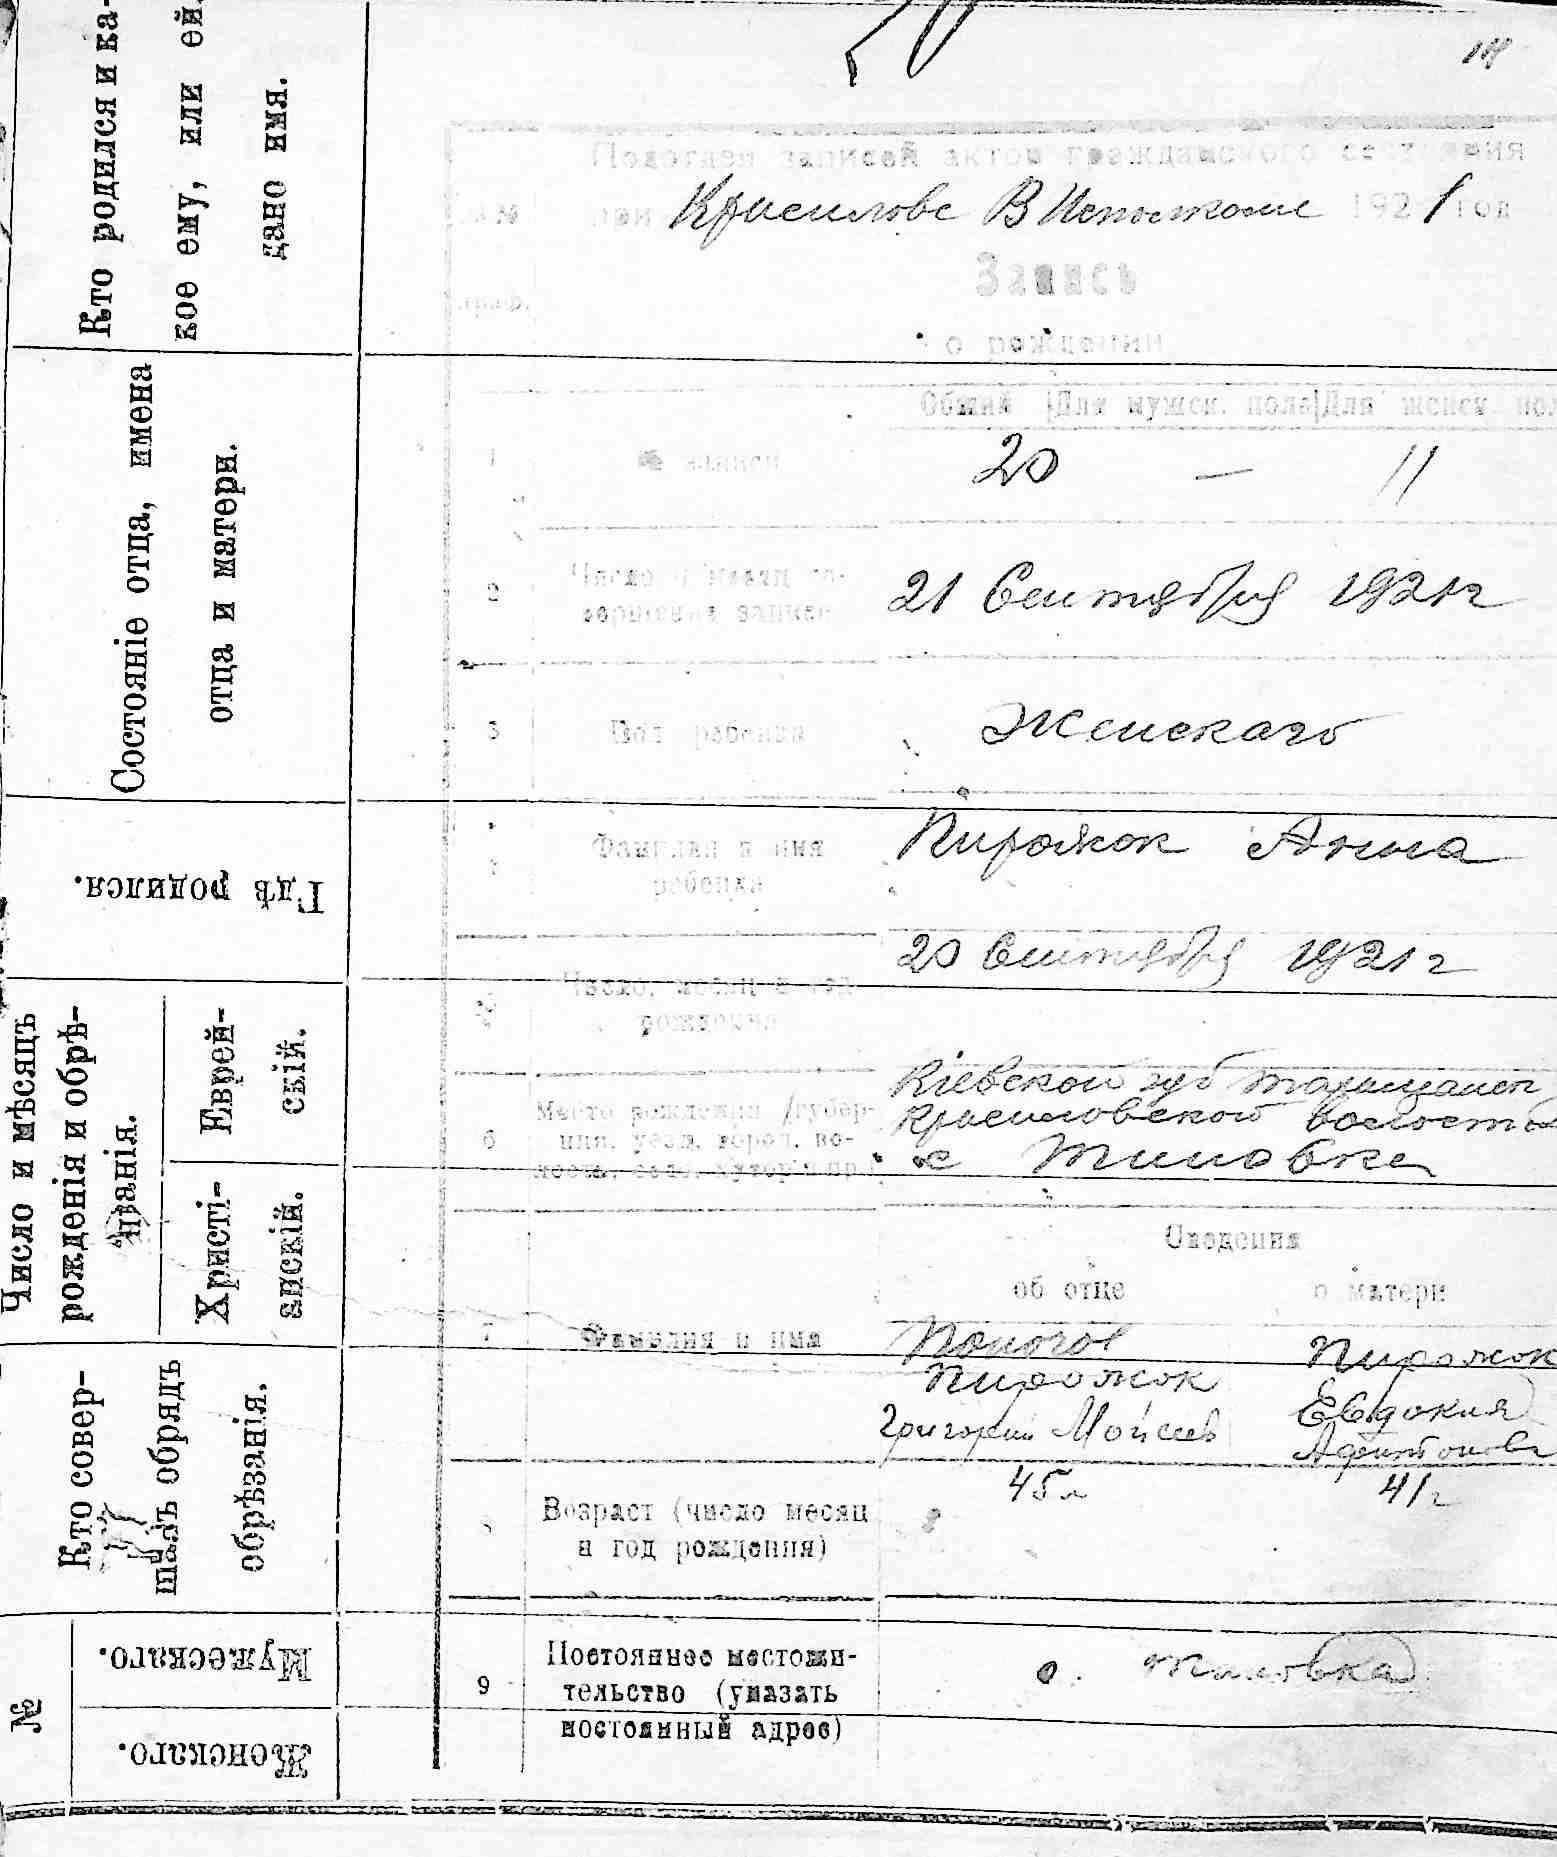 Кто родился и ка-
кое ему, или ей,
дано имя.
Состояніе отца, имена
отца и матери.
Гдѣ родился.
Число и мѣсяцъ
рожденія и обрѣ-
занія.
Еврей-
скій.
Христі-
анскій.
Кто совер-
шалъ обрядъ
обрѣзанія.
№
Мужескаго.
Женскаго.
Подотдел записей актов гражданского состояния
при Красилове ВИсполкоме 1921 год
Запись
о рождении
Общий Для мужск. пола Для женск. пол
1 № записи 20 — 11
2 Число и месяц со-
вершения записи 21 Сентября 1921 г
3 Пол ребенка Женскаго
Фамилия и имя
ребенка Пирожок Анна
Число, месяц и год
рождения 20 Сентября 1921 г
6 Место рождения /губер-
ния, уезд, город, во-
лость, село, хутор и пр./
Кіевской губ Таращанск
Красиловской волости
с Тиновке
Сведения
об отце о матери
7 Фамилия и имя
Пирожок Пирожок
Григорий Моисеев Евдокия
Возраст (число месяц
и год рождения) 45 л 41 г
9 Постоянное местожи-
тельство (указать
постоянный адрес) с. Тиновка